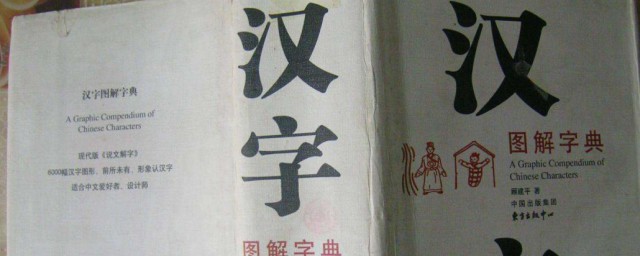 汉字图解字典
A Graphic Compendium of
Chinese Characters
现代版《说文解字》
6000幅汉字图形、前所未有、形象认汉字
适合中文爱好者、设计师
汉
字
图解字典
汉
图解字典
A Graphic Compendium of
Chinese Characters
顾建平 著
中国出版集团
东方出版中心